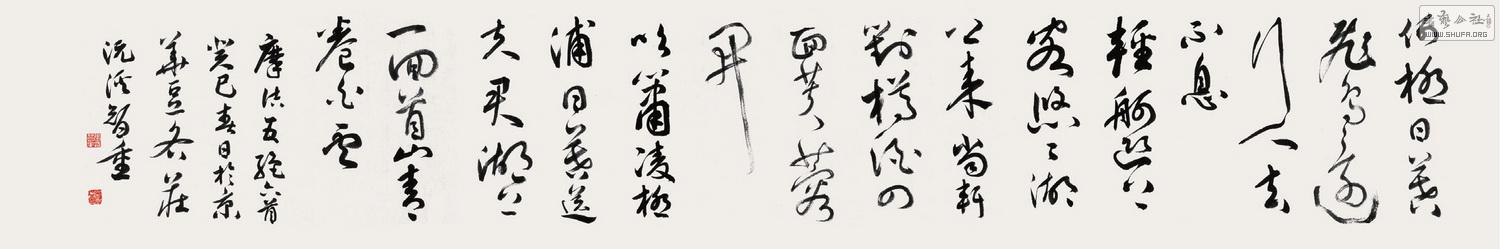 極日暮
飛鳥還
行人去
不息
輕舸迎上
客悠々湖
上來當軒
對樽酒四
面芙蓉
開
吹簫凌極
浦日暮送
夫君湖上
一回首山青
卷白雲
摩詰五絕六首
癸巳春日於京
華豆各莊
沅溪智重
WWW.SHUFA.ORG